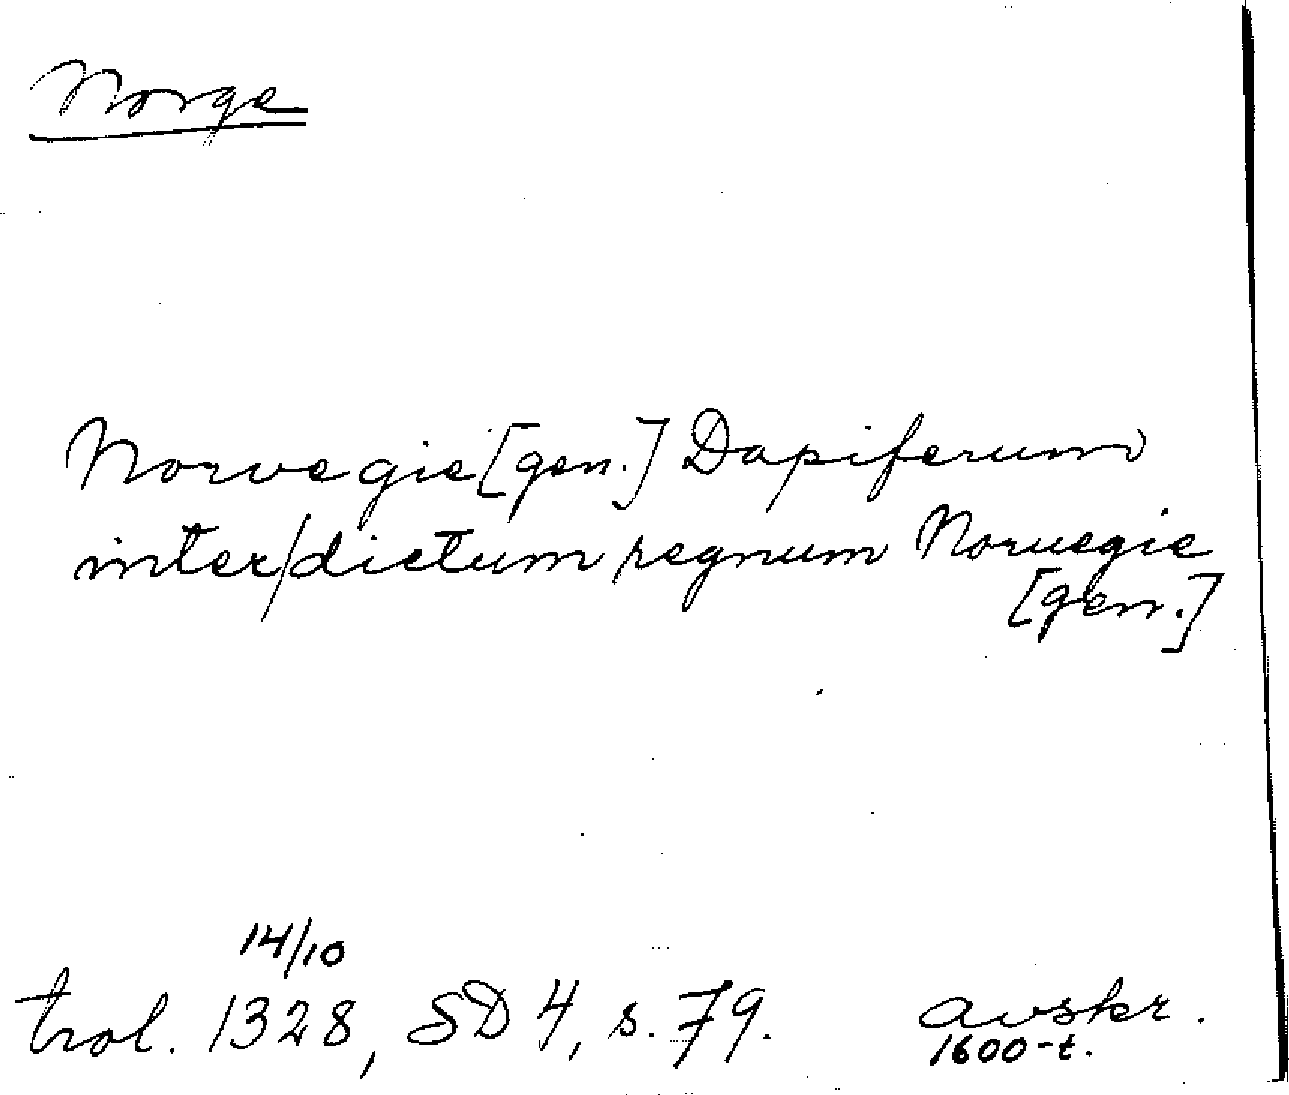 Norge
Norvegie [gen.] Dapiferum
inter/dictum regnum Noruegie
[gen.]
14/10
trol. 1328, SD 4, s. 79.
avskr.
1600-t.